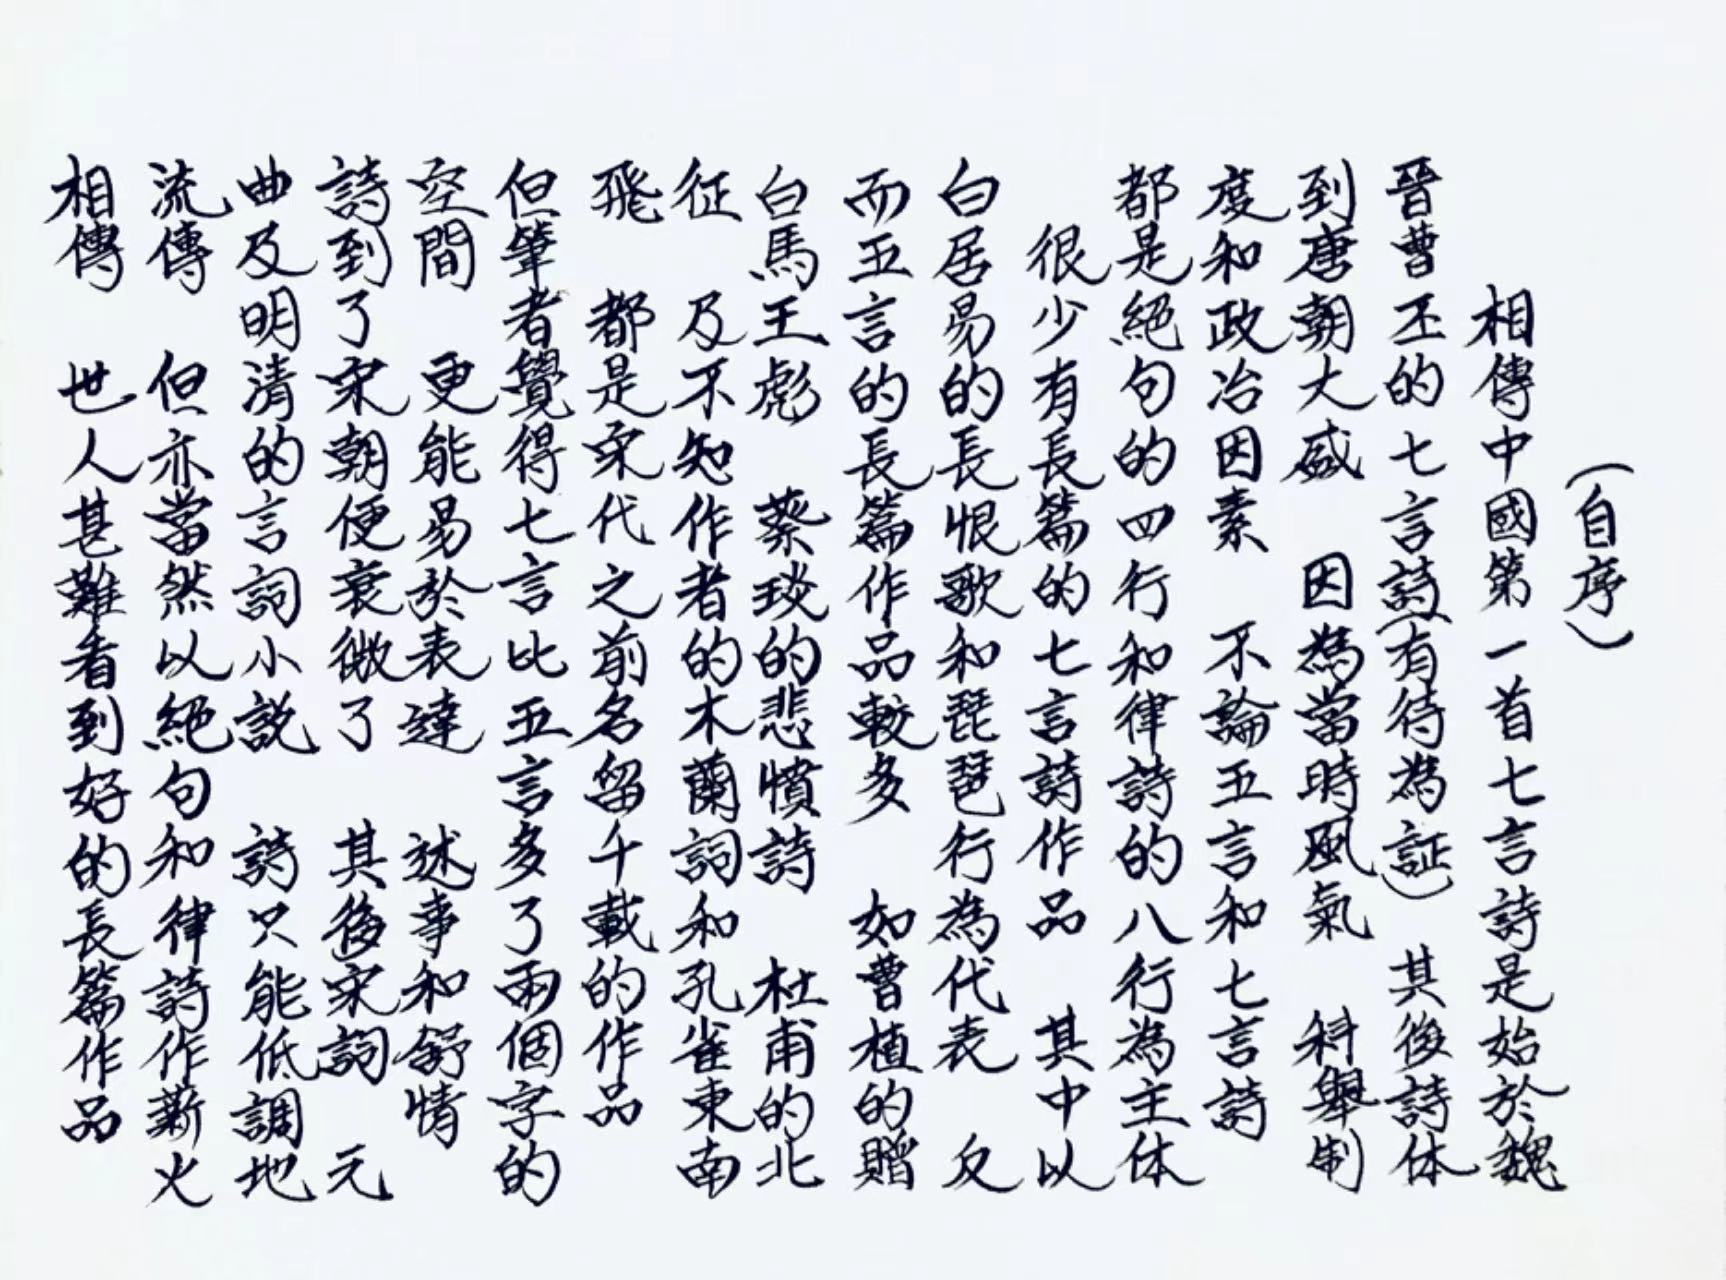 （自序）
相傳中國第一首七言詩是始於魏
晉曹丕的七言詩（有待為証） 其後詩体
到唐朝大盛 因為當時風氣 科舉制
度和政治因素 不論五言和七言詩
都是絕句的四行和律詩的八行為主体
很少有長篇的七言詩作品 其中以
白居易的長恨歌和琵琶行為代表 反
而五言的長篇作品較多 如曹植的贈
白馬王彪 蔡琰的悲憤詩 杜甫的北
征 及不知作者的木蘭詞和孔雀東南
飛 都是宋代之前名留千載的作品
但筆者覺得七言比五言多了兩個字的
空間 更能易於表達 述事和舒情
詩到了宋朝便衰微了 其後宋詞 元
曲及明清的言詞小説 詩只能低調地
流傳 但亦當然以絕句和律詩作薪火
相傳 世人甚難看到好的長篇作品